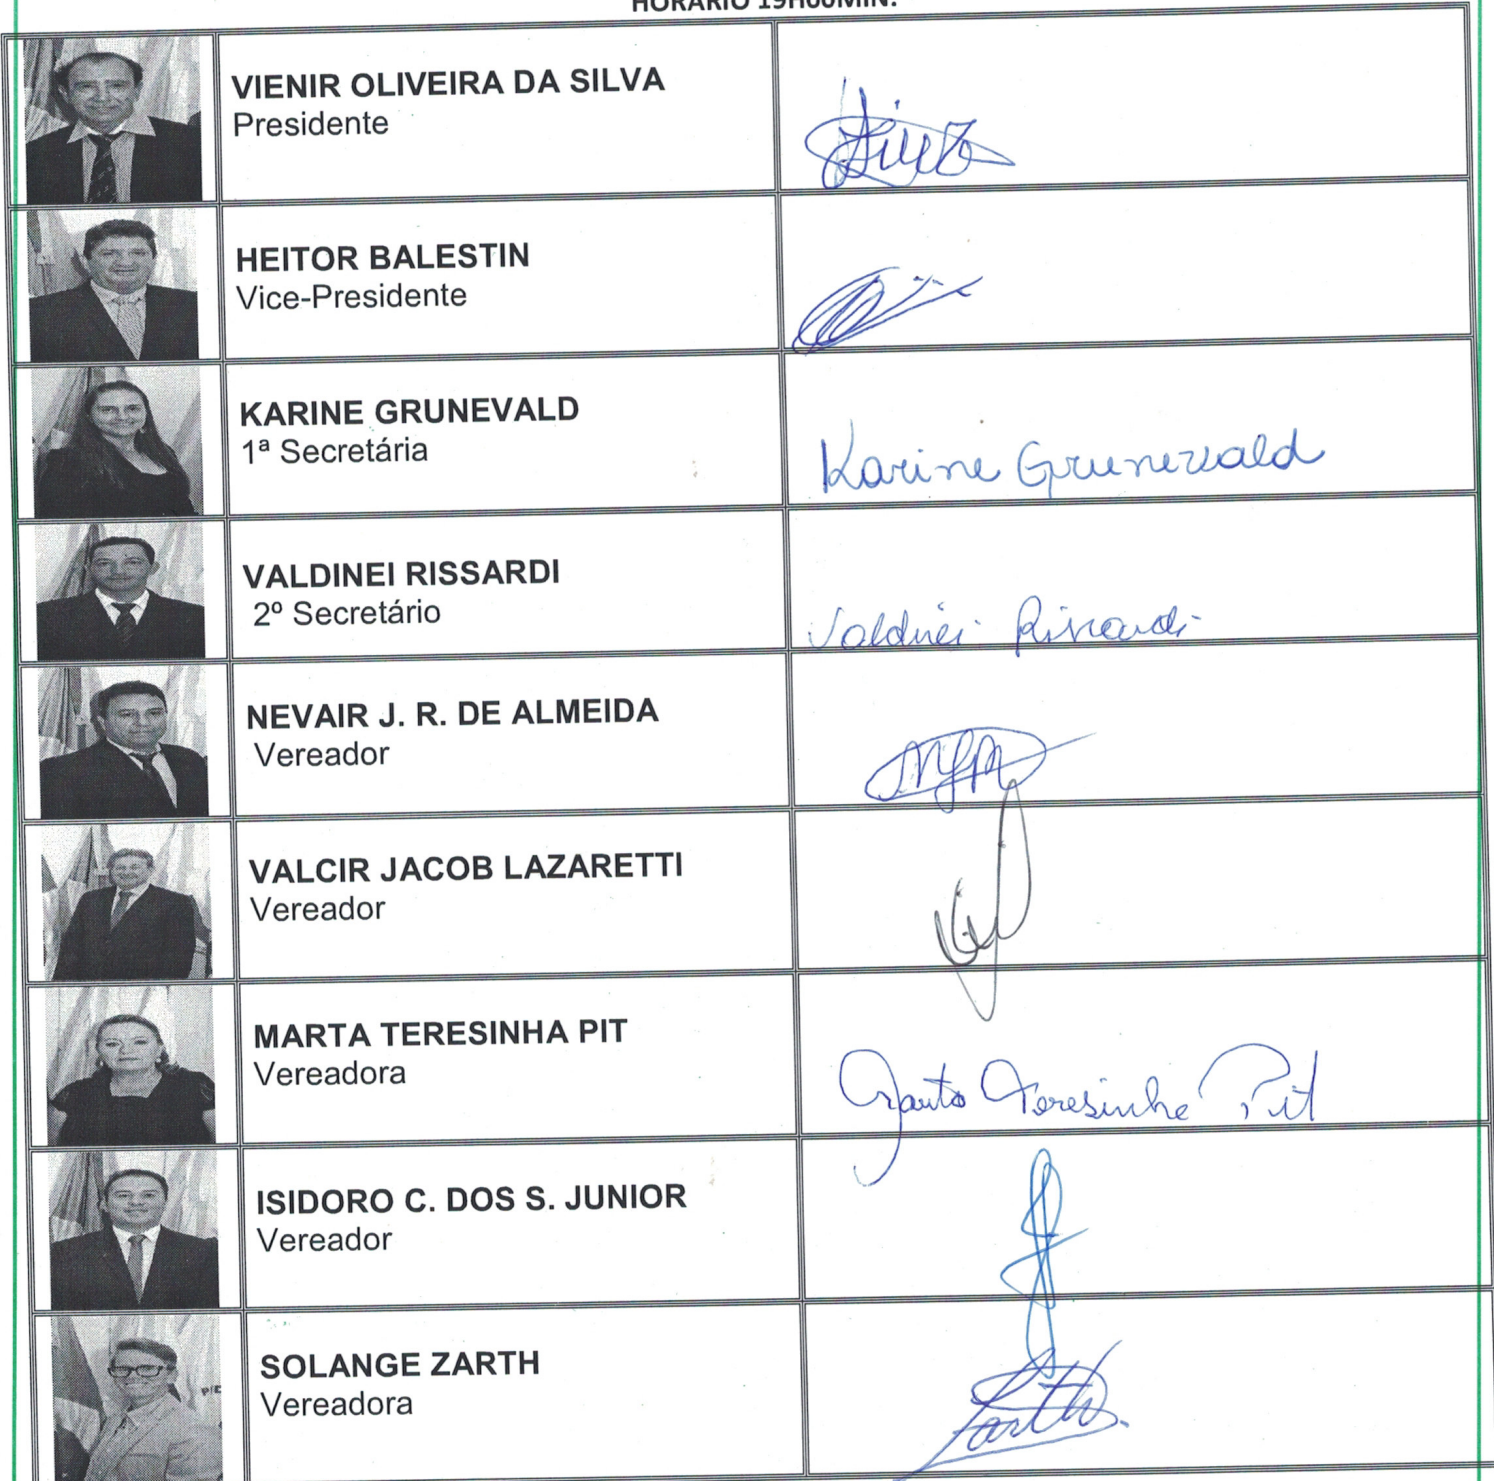 HORÁRIO 19H00MIN.
VIENIR OLIVEIRA DA SILVA
Presidente
HEITOR BALESTIN
Vice-Presidente
KARINE GRUNEVALD
1ª Secretária
Karine Grunevald
VALDINEI RISSARDI
2º Secretário
Valdinei Rissardi
NEVAIR J. R. DE ALMEIDA
Vereador
VALCIR JACOB LAZARETTI
Vereador
MARTA TERESINHA PIT
Vereadora
Marta Teresinha Pit
ISIDORO C. DOS S. JUNIOR
Vereador
SOLANGE ZARTH
Vereadora
Zarth